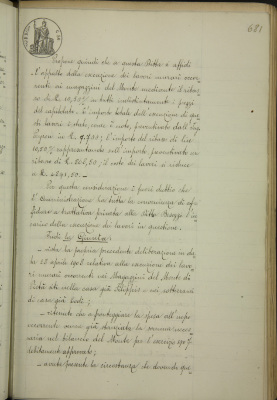 681
Propone quindi che a questa Ditta si affidi
l'appalto della esecuzione dei lavori murari occor-
renti ai magazzini del Monte mediante il ribas-
so del 10,50% su tutti indistintamente i prezzi
del capitolato. L'importo totale dell'esecuzione di que-
di lavori è stato, come è noto, preventivato dall'
in L. 4.700; l'importo del ribasso di lire
10,50% rappresentando sull'importo preventivato un
ribasso di L. il costo dei lavori si riduce
a L.
In questa considerazione è poi detto che
l'Amministrazione ha tutta la convenienza di af-
fidare a trattativa privata alla Ditta l'in-
carico della esecuzione dei lavori in questione.
Tutto la Giunta:
- vista la propria precedente deliberazione in da-
ta 12 aprile 1907 relativa alla esecuzione dei lavo-
ri murari occorrenti nei Magazzini del Monte di
Pietà siti nella casa già Filippini e nei sotterranei
di casa già Lodi;
- ritenuto che a fronteggiare la spesa all'uopo
occorrente venne già stanziata la somma neces-
saria nel bilancio del Monte per l'esercizio 1907
debitamente approvato;
- avuta presente la circostanza che dovendo que-